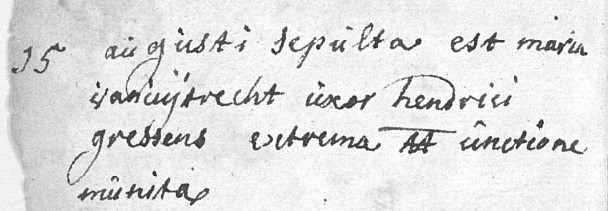 15 augusti sepulta est maria
vanuÿtrecht uxor hendrici
gressens extrema unctione
munita